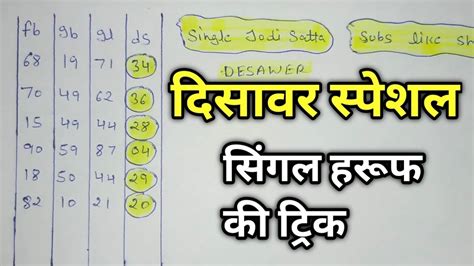 fb gb gd ds
68 19 71 34
70 49 62 36
15 49 44 28
90 59 87 04
18 50 44 29
82 10 21 20
Single Jodi Satta
Subs like sh
DESAWER
दिसावर स्पेशल
सिंगल हरूफ
की ट्रिक